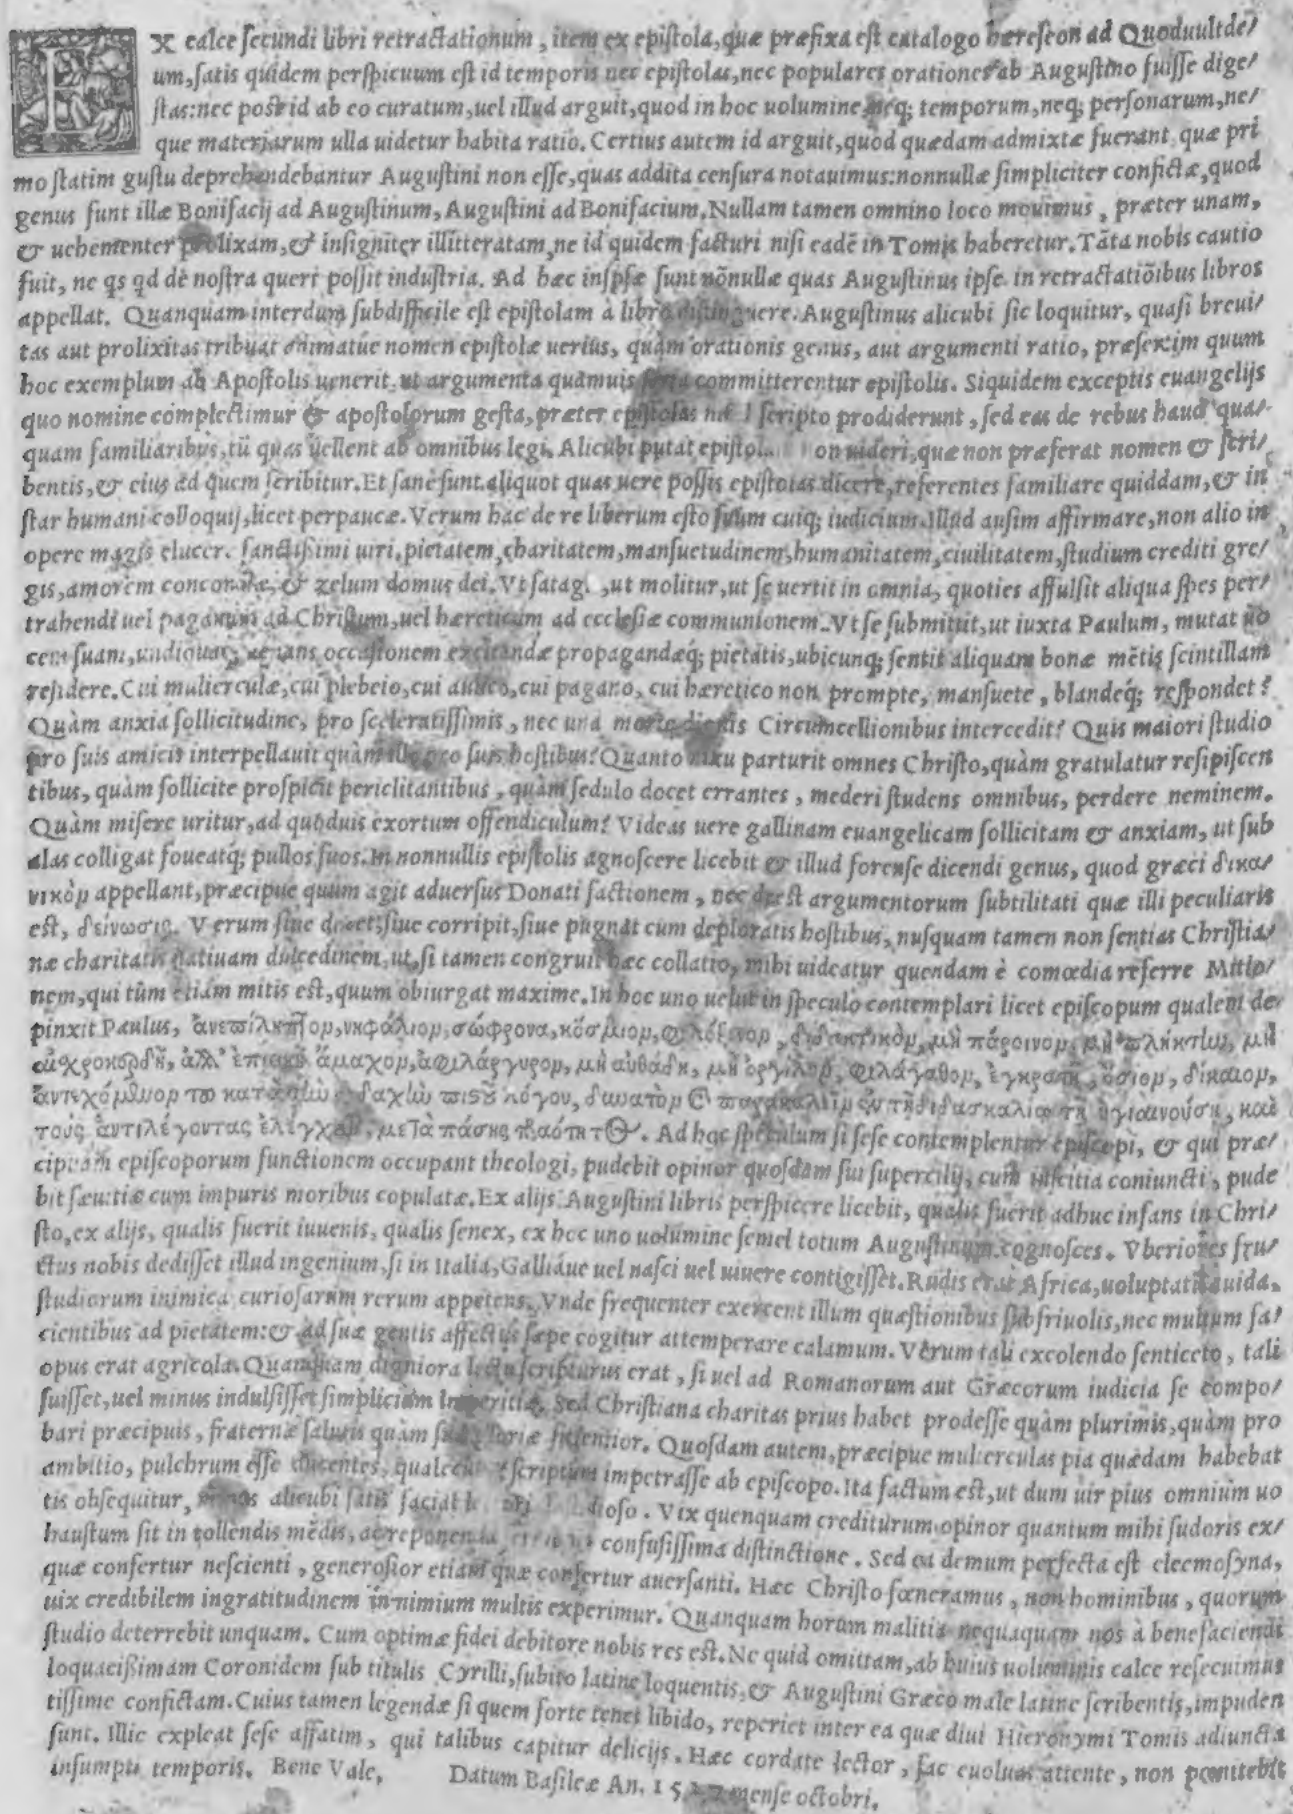 EX calce secundi libri retractationum, item ex epistola, quæ præfixa est catalogo hæreseon ad Quoduultde/
um, satis quidem perspicuum est id temporis nec epistolas, nec populares orationes ab Augustino fuisse dige/
stas: nec post id ab eo curatum, uel illud arguit, quod in hoc uolumine neq; temporum, neq; personarum, ne/
que materiarum ulla uidetur habita ratio. Certius autem id arguit, quod quædam admixtæ fuerant quæ pri
mo statim gustu deprehendebantur Augustini non esse, quas addita censura notauimus: nonnullæ simpliciter confictæ, quod
genus sunt illæ Bonifacij ad Augustinum, Augustini ad Bonifacium. Nullam tamen omnino loco mouimus, præter unam,
& uehementer prolixam, & insigniter illitteratam, ne id quidem facturi nisi eadē in Tomis haberetur. Tāta nobis cautio
fuit, ne qs qd dē nostra queri possit industria. Ad hæc inspsæ sunt nōnullæ quas Augustinus ipse in retractatiōibus libros
appellat. Quanquam interdum subdifficile est epistolam à libro distinguere. Augustinus alicubi sic loquitur, quasi breui/
tas aut prolixitas tribuat adimatúe nomen epistolæ uerius, quàm orationis genus, aut argumenti ratio, præsertim quum
hoc exemplum ab Apostolis uenerit, ut argumenta quamuis seria committerentur epistolis. Siquidem exceptis euangelijs
quo nomine complectimur & apostolorum gesta, præter epistolas nil scripto prodiderunt, sed eas de rebus haud qua/
quam familiaribus, tū quas uellent ab omnibus legi. Alicubi putat epistol on uideri, quæ non præferat nomen & scri/
bentis, & eius ad quem scribitur. Et sane sunt aliquot quas uere possis epistolas dicere, referentes familiare quiddam, & in
star humani colloquij, licet perpaucæ. Verum hac de re liberum esto suum cuiq; iudicium. Illud ausim affirmare, non alio in
opere magis elucer. sanctissimi uiri, pietatem, charitatem, mansuetudinem, humanitatem, ciuilitatem, studium crediti gre/
gis, amorem concordiæ, & zelum domus dei. Vt satag, ut molitur, ut se uertit in omnia, quoties affulsit aliqua spes per/
trahendi uel paganum ad Christum, uel hæreticum ad ecclesiæ communionem. Vt se submittit, ut iuxta Paulum, mutat uo
cem suam, undiquaq; uenans occasionem excitandæ propagandæq; pietatis, ubicunq; sentit aliquam bonæ mētis scintillam
residere. Cui mulierculæ, cui plebeio, cui aulico, cui pagano, cui hæretico non prompte, mansuete, blandeq; respondet?
Quàm anxia sollicitudine, pro sceleratissimis, nec una morte dignis Circumcellionibus intercedit? Quis maiori studio
pro suis amicis interpellauit quàm ille pro suis hostibus? Quanto nixu parturit omnes Christo, quàm gratulatur resipiscen
tibus, quàm sollicite prospicit periclitantibus, quàm sedulo docet errantes, mederi studens omnibus, perdere neminem.
Quàm misere uritur, ad quoduis exortum offendiculum? Videas uere gallinam euangelicam sollicitam & anxiam, ut sub
alas colligat foueatq; pullos suos. In nonnullis epistolis agnoscere licebit & illud forense dicendi genus, quod græci δικα/
νικὸν appellant, præcipue quum agit aduersus Donati factionem, nec deest argumentorum subtilitati quæ illi peculiaris
est, δείνωσις. Verum siue docet, siue corripit, siue pugnat cum deploratis hostibus, nusquam tamen non sentias Christia/
næ charitatis natiuam dulcedinem, ut, si tamen congruit hæc collatio, mihi uideatur quendam è comœdia referre Mitio/
nem, qui tûm etiam mitis est, quum obiurgat maxime. In hoc uno uelut in speculo contemplari licet episcopum qualem de
pinxit Paulus, ἀνεπίληπτον, νηφάλιον, σώφρονα, κόσμιον, φιλόξενον, διδακτικὸν, μὴ πάροινον, μὴ πλήκτην, μὴ
αἰσχροκερδῆ, ἀλλ' ἐπιεικῆ ἄμαχον, ἀφιλάργυρον, μὴ αὐθάδη, μὴ ὀργίλον, φιλάγαθον, ἐγκρατῆ, ὅσιον, δίκαιον,
ἀντεχόμενον τοῦ κατὰ τὴν διδαχὴν πιστοῦ λόγου, δυνατὸν καὶ παρακαλεῖν ἐν τῇ διδασκαλίᾳ τῇ ὑγιαινούσῃ, καὶ
τοὺς ἀντιλέγοντας ἐλέγχειν, μετὰ πάσης πραότητος. Ad hoc speculum si sese contemplentur episcopi, & qui præ/
cipuam episcoporum functionem occupant theologi, pudebit opinor quosdam sui supercilij, cum inscitia coniuncti, pude
bit sæuitiæ cum impuris moribus copulatæ. Ex alijs Augustini libris perspicere licebit, qualis fuerit adhuc infans in Chri/
sto, ex alijs, qualis fuerit iuuenis, qualis senex, ex hoc uno uolumine semel totum Augustinum cognosces. Vberiores fru/
ctus nobis dedisset illud ingenium, si in Italia, Galliáue uel nasci uel uiuere contigisset. Rudis erat Africa, uoluptatū auida.
studiorum inimica curiosarum rerum appetens. Vnde frequenter exercent illum quæstionibus subfriuolis, nec multum fa/
cientibus ad pietatem: & ad suæ gentis affectus sæpe cogitur attemperare calamum. Verum tali excolendo senticeto, tali
opus erat agricola. Quamquam digniora lectu scripturus erat, si uel ad Romanorum aut Græcorum iudicia se compo/
suisset, uel minus indulsisset simplicium imperitiæ. Sed Christiana charitas prius habet prodesse quàm plurimis, quàm pro
bari præcipuis, fraternæ salutis quàm suæ gloriæ sitientior. Quosdam autem, præcipue mulierculas pia quædam habebat
ambitio, pulchrum esse ducentes, qualecunque scriptum impetrasse ab episcopo. Ita factum est, ut dum uir pius omnium uo
tis obsequitur, minus alicubi satis faciat dioso. Vix quenquam crediturum opinor quantum mihi sudoris ex/
haustum sit in tollendis mēdis, ac reponenda confusissima distinctione. Sed ea demum perfecta est eleemosyna,
quæ confertur nescienti, generosior etiam quæ confertur auersanti. Hæc Christo fœneramus, non hominibus, quorum
uix credibilem ingratitudinem in nimium multis experimur. Quanquam horum malitia nequaquam nos à benefaciendi
studio deterrebit unquam. Cum optimæ fidei debitore nobis res est. Ne quid omittam, ab huius uoluminis calce resecuimus
loquacißimam Coronidem sub titulis Cyrilli, subito latine loquentis, & Augustini Græco male latine scribentis, impuden
tissime confictam. Cuius tamen legendæ si quem forte tenet libido, reperiet inter ea quæ diui Hieronymi Tomis adiuncta
sunt. Illic expleat sese affatim, qui talibus capitur delicijs. Hæc cordate lector, fac euoluas attente, non pœnitebit
insumpti temporis. Bene Vale. Datum Basileæ An. 1527 mense octobri.